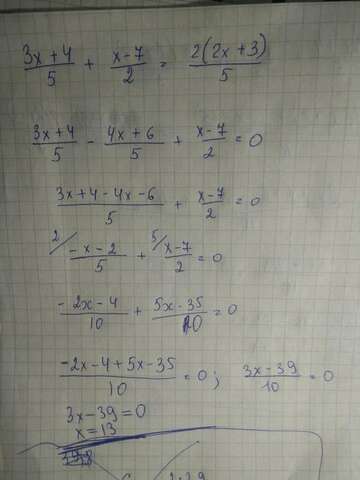 (3x+4)/5 + (x-7)/2 = 2(2x+3)/5
(3x+4)/5 - (4x+6)/5 + (x-7)/2 = 0
(3x+4-4x-6)/5 + (x-7)/2 = 0
2/ (-x-2)/5 + 5/ (x-7)/2 = 0
(-2x-4)/10 + (5x-35)/10 = 0
(-2x-4+5x-35)/10 = 0; (3x-39)/10 = 0
3x-39=0
x=13